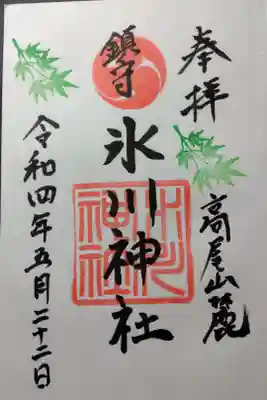 奉拝
高尾山麓
鎮守
氷川神社
氷川神社
令和四年五月二十二日